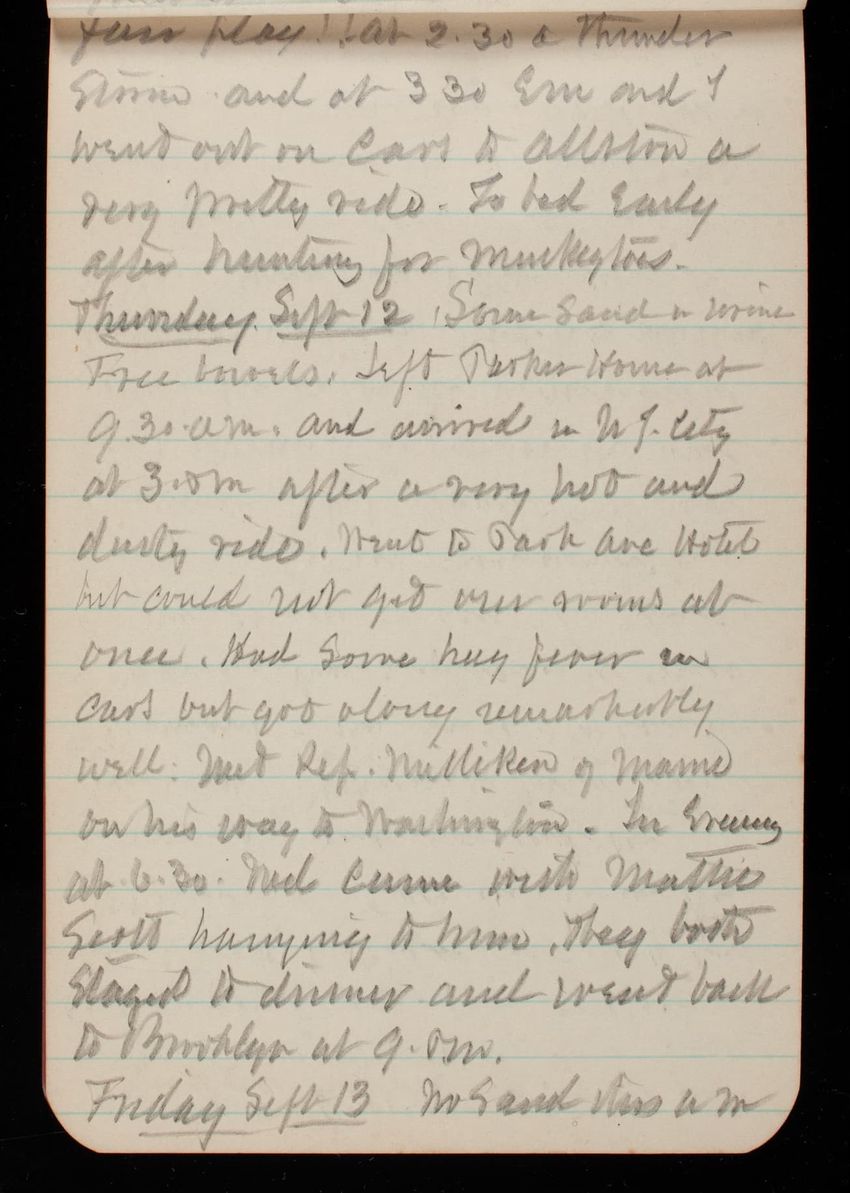 fair play!! at 2.30 a thunder
storm and at 3 30 Em and I
went out on Cars to Allston a
very pretty ride. To bed Early
after hunting for Muskeytoes.
Thursday Sept 12 Some Sand in urine
Free bowels. Left Parker House at
9.30 a.m. and arrived in N.Y. City
at 3. P.m after a very hot and
dusty ride. Went to Park Ave Hotel
but could not get our rooms at
once. Had Some hay fever in
Cars but got along remarkably
well. Met Rep. Milliken of Maine
on his way to Washington. In Evening
at 6.30. Ned Came with Mattie
Scott hanging to him. They both
Stayed to dinner and went back
to Brooklyn at 9. P.m.
Friday Sept 13 No Sand this a m